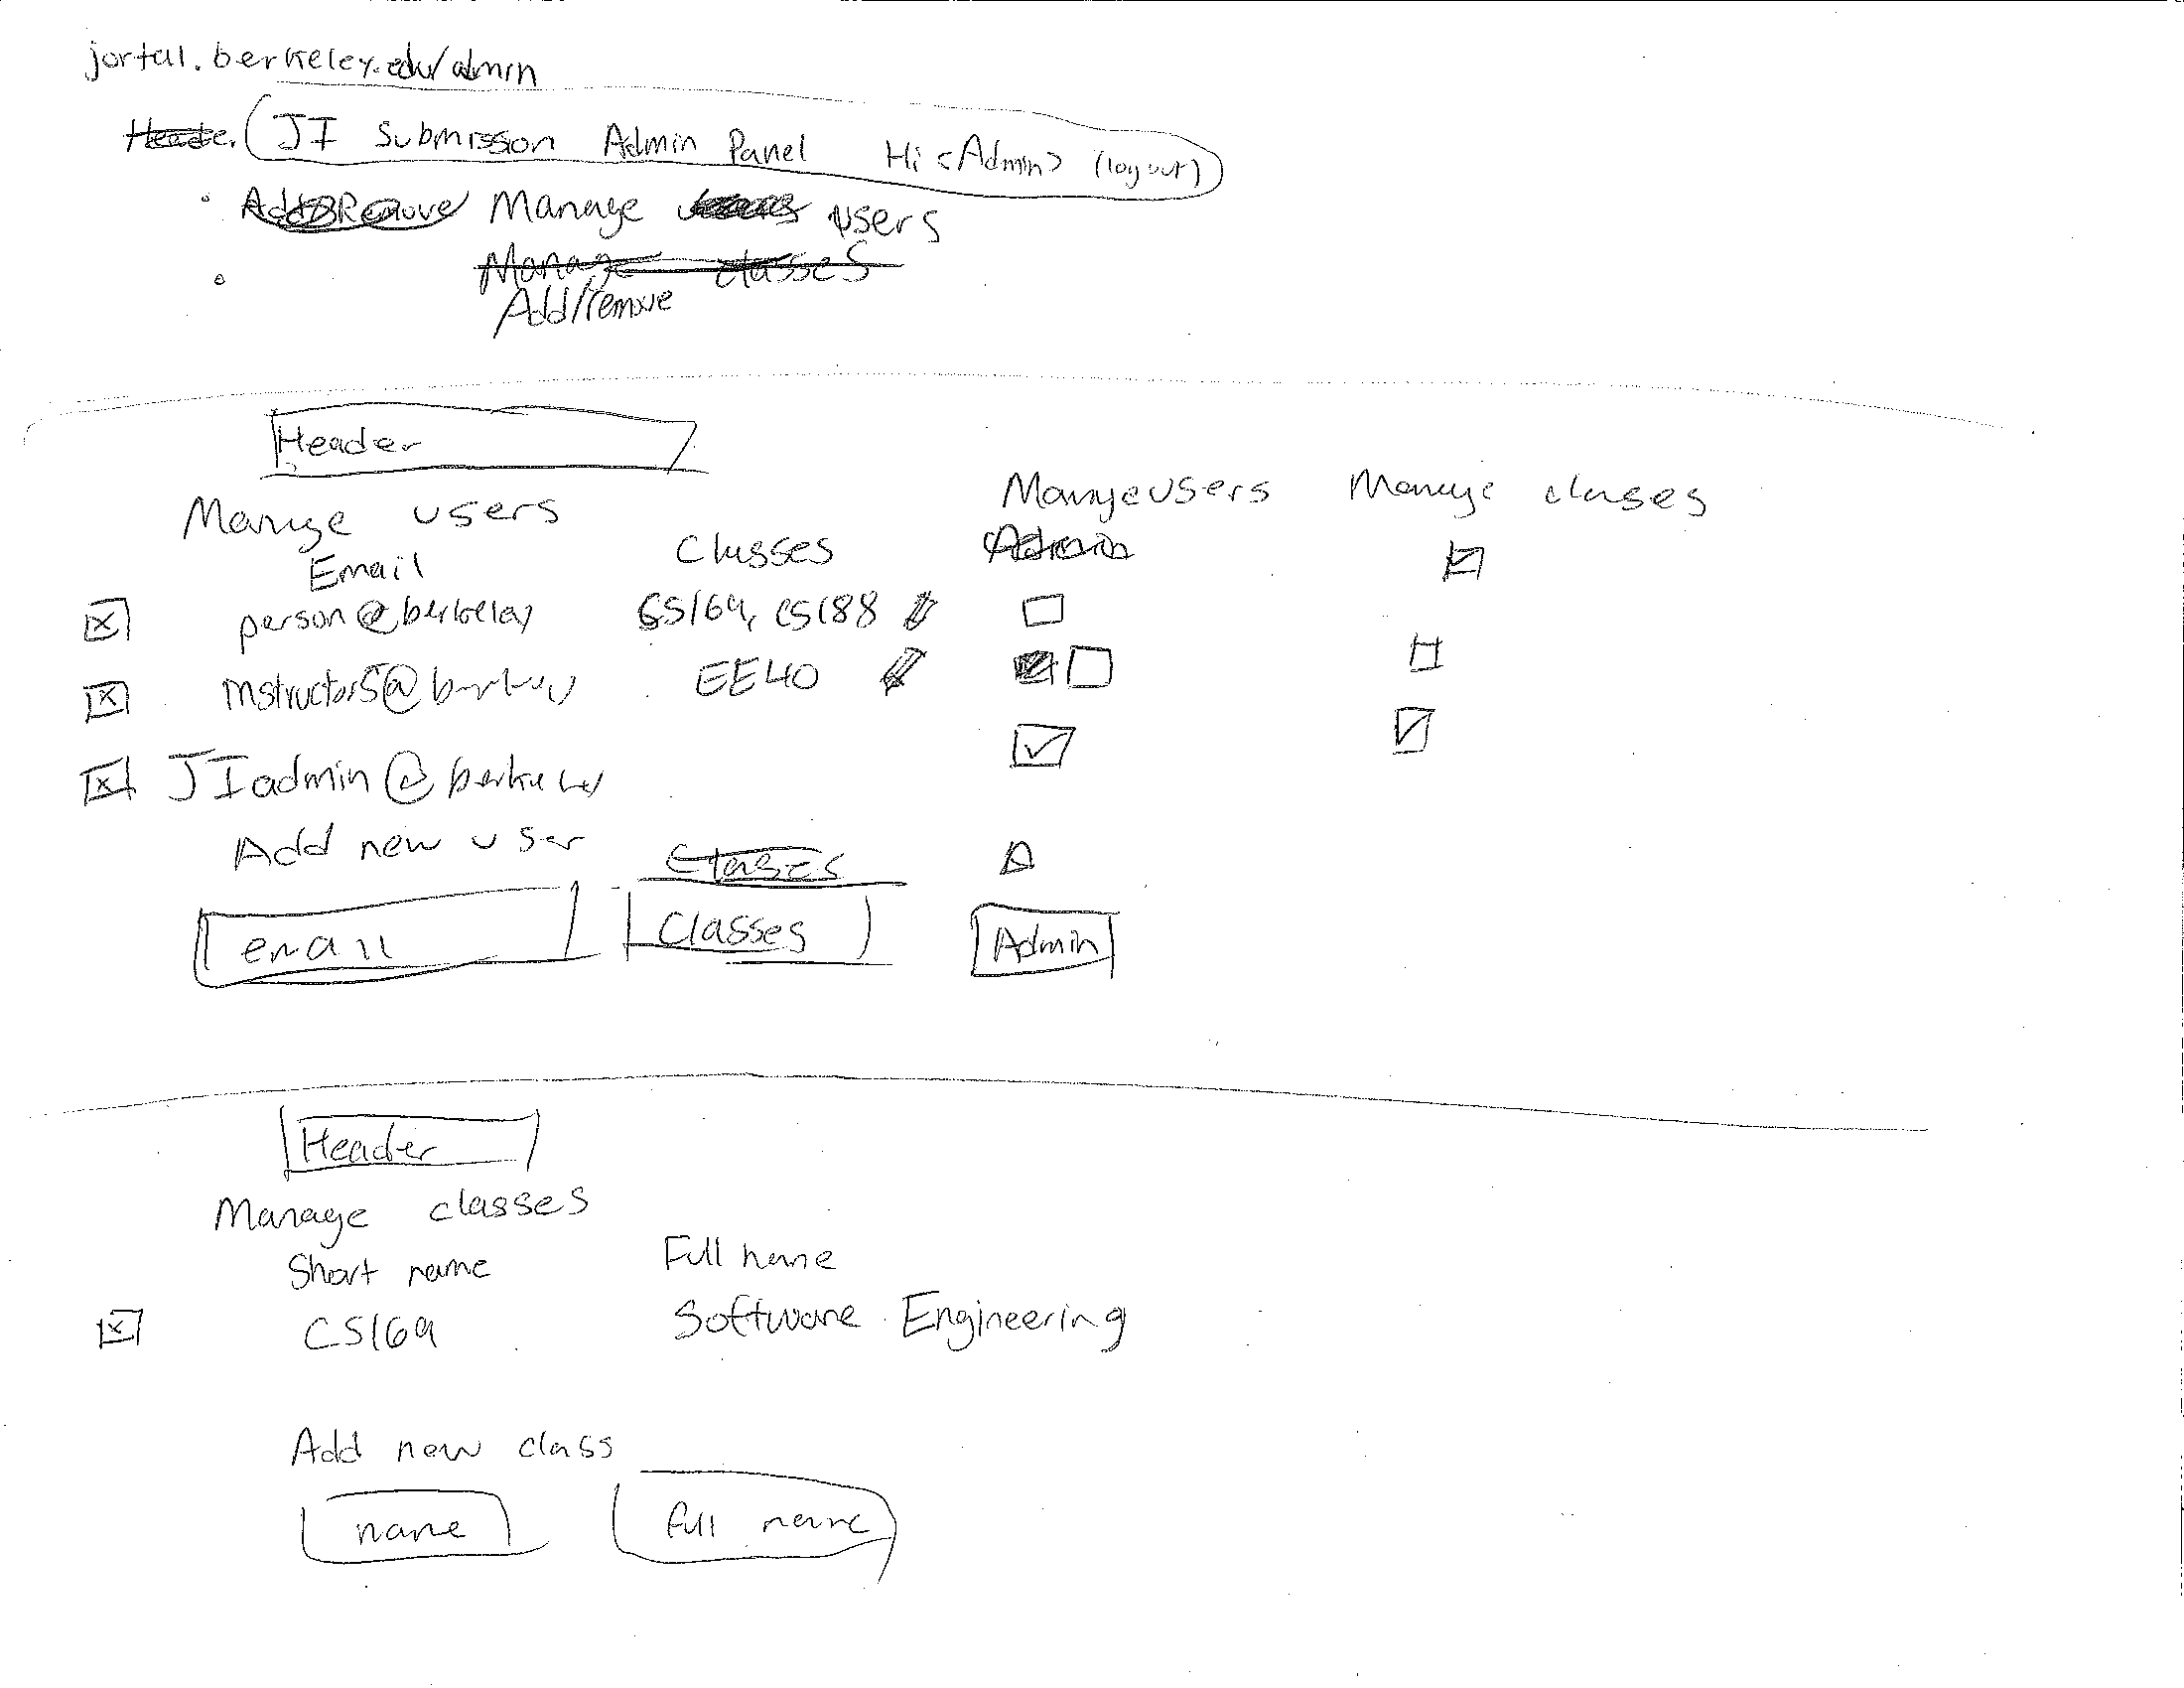 jortal.berkeley.edu/admin
Header JI Submission Admin Panel Hi <Admin> (logout)
Add/Remove Manage users
Manage classes
Add/remove
Header
Manage users Manage users Manage clases
Email Classes Admin
person@berkeley CS169, CS188
instructor5@berkeley EE40
JIadmin@berkeley
Add new user Classes A
email Classes Admin
Header
Manage classes
Short name Full name
CS169 Software Engineering
Add new class
name full name